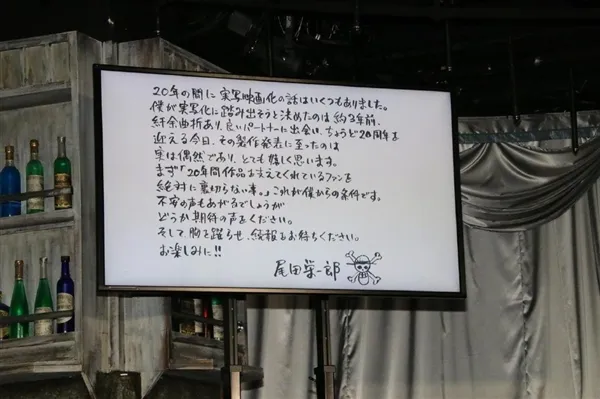 20年の間に実写映画化の話はいくつもありました。
僕が実写化に踏み出そうと決めたのは約3年前。
紆余曲折あり、良いパートナーと出会い、ちょうど20周年を
迎える今日、その製作発表に至ったのは
実は偶然であり、とても嬉しく思います。
まず「20年間作品を支えてくれているファンを
絶対に裏切らない事。」これが僕からの条件です。
不安の声もあがるでしょうが
どうか期待の声をください。
そして胸を躍らせ、続報をお待ちください。
お楽しみに!!
尾田栄一郎